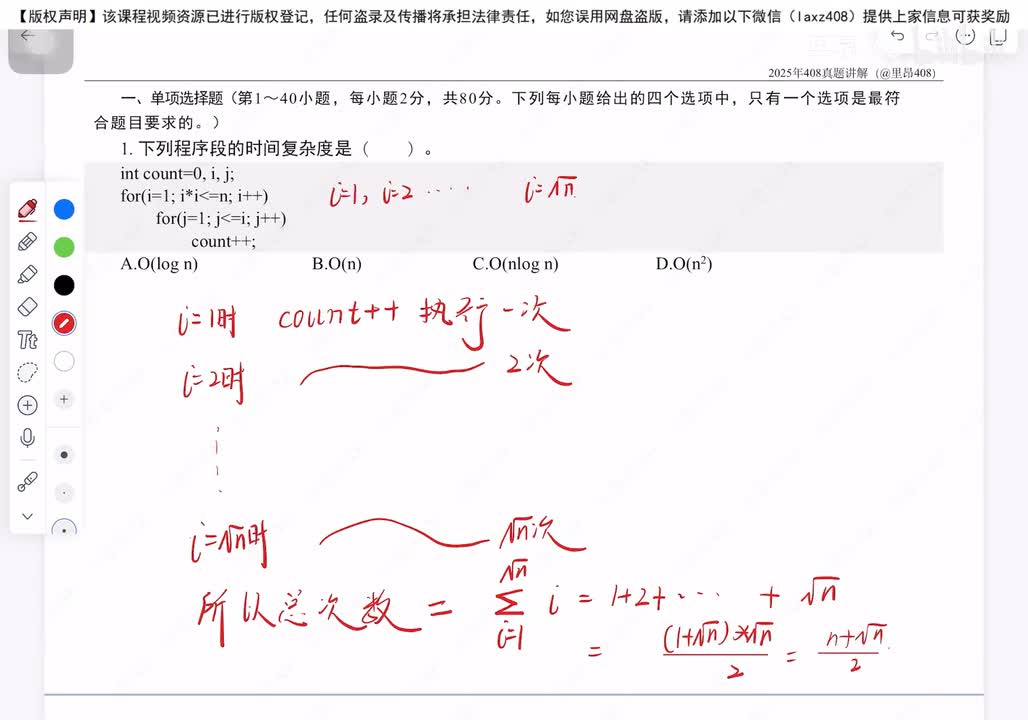 【版权声明】该课程视频资源已进行版权登记，任何盗录及传播将承担法律责任，如您误用网盘盗版，请添加以下微信（laxz408）提供上家信息可获奖励
2025年408真题讲解（@里昂408）
一、单项选择题（第1～40小题，每小题2分，共80分。下列每小题给出的四个选项中，只有一个选项是最符
合题目要求的。）
1. 下列程序段的时间复杂度是（　　）。
int count=0, i, j;
for(i=1; i*i<=n; i++) i=1, i=2 ····· i=√n
for(j=1; j<=i; j++)
count++;
A.O(log n) B.O(n) C.O(nlog n) D.O(n²)
i=1时 count++ 执行一次
i=2时 2次
i=√n时 √n次
所以总次数 = √n ∑ i=1 i = 1+2+··· + √n
= (1+√n)*√n / 2 = n+√n / 2
Tt